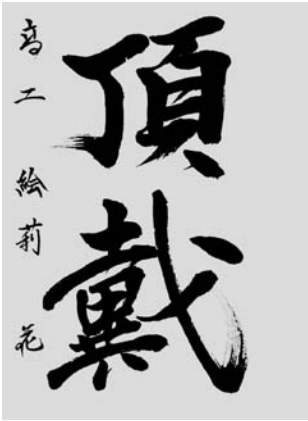 頂戴
高二 絵莉花